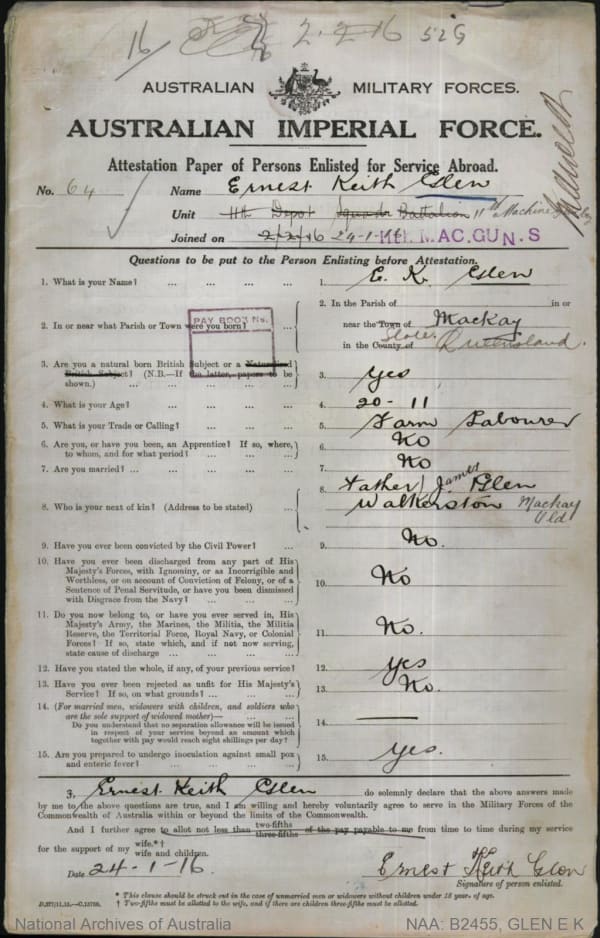 16/ 2.2.16 529
AUSTRALIAN MILITARY FORCES.
AUSTRALIAN IMPERIAL FORCE.
Attestation Paper of Persons Enlisted for Service Abroad.
No. 64 Name Ernest Keith Glen
Unit 11th Depot Squadn Battalion 11th Machine
Joined on 2/2/16 24-1-16 MAC.GUN.S
Questions to be put to the Person Enlisting before Attestation.
1. What is your Name? ... ... ... 1. E. K. Glen
2. In the Parish of in or
2. In or near what Parish or Town were you born? ... near the Town of Mackay
PAY BOOK No.
in the County of State Queensland.
3. Are you a natural born British Subject or a Naturalised
British Subject? (N.B.—If the latter, papers to be
shown.) ... ... ... 3. Yes
4. What is your Age? ... ... ... 4. 20-11
5. What is your Trade or Calling? ... ... 5. Farm Labourer
6. Are you, or have you been, an Apprentice? If so, where,
to whom, and for what period? ... ... 6. No
7. Are you married? ... ... ... ... 7. No
8. Who is your next of kin? (Address to be stated) ... 8. Father James Glen
Walkerston Mackay
Qld
9. Have you ever been convicted by the Civil Power? ... 9. No.
10. Have you ever been discharged from any part of His
Majesty's Forces, with Ignominy, or as Incorrigible and
Worthless, or on account of Conviction of Felony, or of a
Sentence of Penal Servitude, or have you been dismissed
with Disgrace from the Navy? ... ... ... 10. No
11. Do you now belong to, or have you ever served in, His
Majesty's Army, the Marines, the Militia, the Militia
Reserve, the Territorial Force, Royal Navy, or Colonial
Forces? If so, state which, and if not now serving,
state cause of discharge ... ... ... 11. No.
12. Have you stated the whole, if any, of your previous service? 12. Yes
13. Have you ever been rejected as unfit for His Majesty's
Service? If so, on what grounds? ... ... 13. No.
14. (For married men, widowers with children, and soldiers who
are the sole support of widowed mother)—
Do you understand that no separation allowance will be issued
in respect of your service beyond an amount which
together with pay would reach eight shillings per day? 14. —
15. Are you prepared to undergo inoculation against small pox
and enteric fever? ... ... ... 15. Yes.
I, Ernest Keith Glen do solemnly declare that the above answers made
by me to the above questions are true, and I am willing and hereby voluntarily agree to serve in the Military Forces of the
Commonwealth of Australia within or beyond the limits of the Commonwealth.
And I further agree to allot not less than two-fifths three-fifths of the pay payable to me from time to time during my service
for the support of my wife.*† wife and children.
Date 24-1-16. Ernest Keith Glen
Signature of person enlisted.
* This clause should be struck out in the case of unmarried men or widowers without children under 18 years of age.
† Two-fifths must be allotted to the wife, and if there are children three-fifths must be allotted.
National Archives of Australia NAA: B2455, GLEN E K